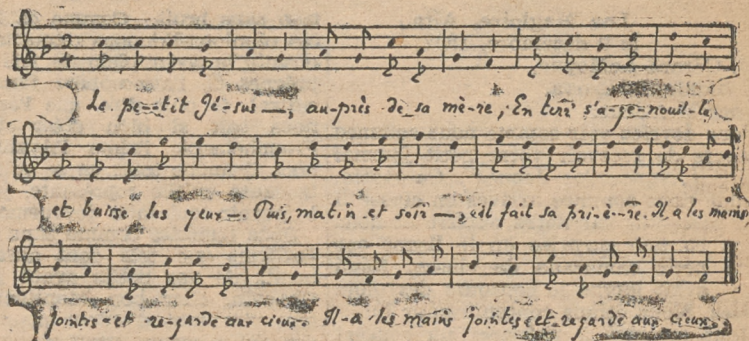 Le pe-tit Jé-sus —, au-près de sa mè-re, En terr' s'a-ge-nouil-le,
et baisse les yeux —. Puis, matin et soir —, il fait sa pri-è-re. Il a les mains
jointes et re-garde aux cieux. Il a les mains jointes et regarde aux cieux.